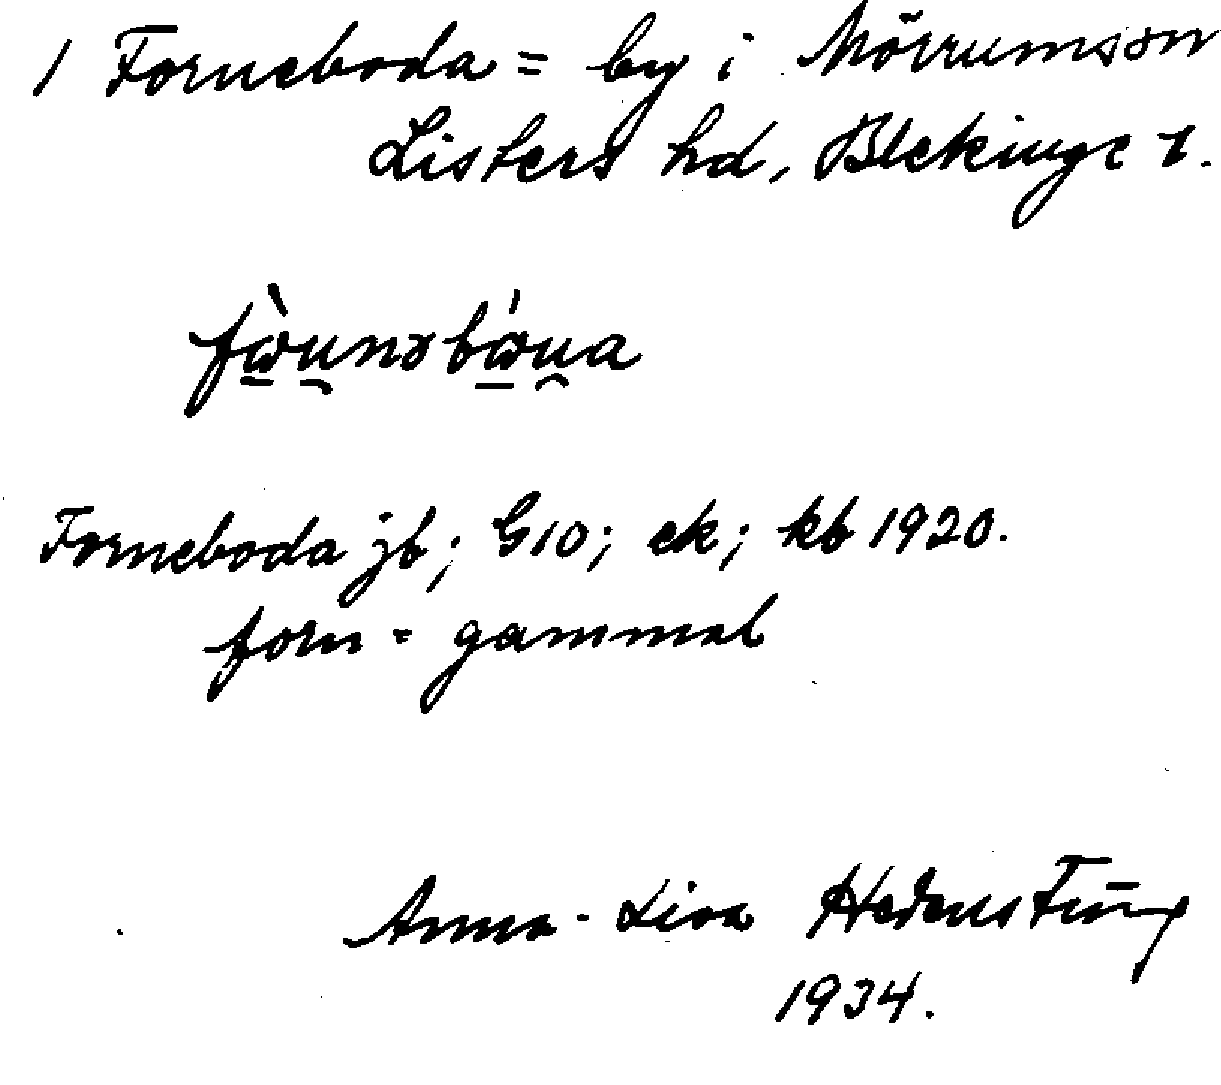 1 Forneboda = by i Mörrums sn
Listers hd, Blekinge l.
Forneboda jb; G10; ek; kb 1920.
forn = gammal
Anna-Lisa
1934.